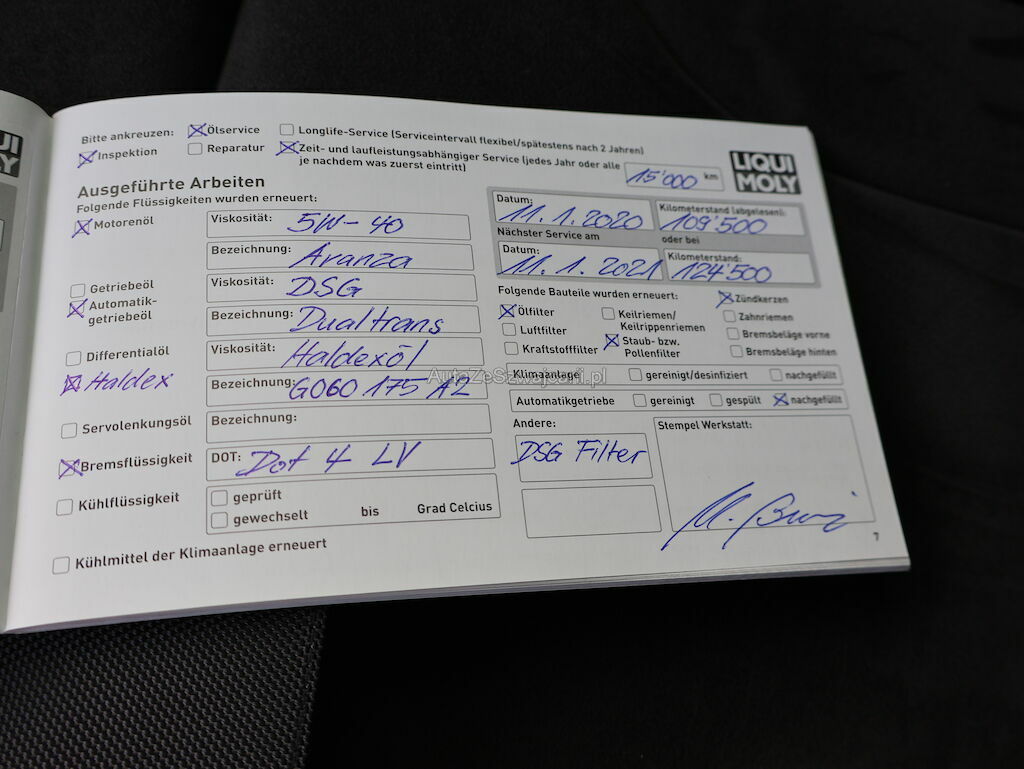 LIQUI
MOLY
Bitte ankreuzen: Ölservice Longlife-Service (Serviceintervall flexibel/spätestens nach 2 Jahren)
Inspektion Reparatur Zeit- und laufleistungsabhängiger Service (jedes Jahr oder alle 15'000 km
je nachdem was zuerst eintritt)
Ausgeführte Arbeiten
Folgende Flüssigkeiten wurden erneuert:
Motorenöl Viskosität: 5W-40
Bezeichnung: Avanza
Getriebeöl Viskosität: DSG
Automatik-
getriebeöl Bezeichnung: Dualtrans
Differentialöl Viskosität: Haldexöl
Haldex Bezeichnung: G060 175 A2
Servolenkungsöl Bezeichnung:
Bremsflüssigkeit DOT: Dot 4 LV
Kühlflüssigkeit geprüft
gewechselt bis Grad Celcius
Kühlmittel der Klimaanlage erneuert
LIQUI
MOLY
Datum: 11.1.2020 Kilometerstand (abgelesen): 109'500
Nächster Service am oder bei
Datum: 11.1.2021 Kilometerstand: 124'500
Folgende Bauteile wurden erneuert:
Ölfilter Keilriemen/
Keilrippenriemen Zündkerzen
Luftfilter Staub- bzw.
Pollenfilter Zahnriemen
Kraftstofffilter Bremsbeläge vorne
Bremsbeläge hinten
Klimaanlage gereinigt/desinfiziert nachgefüllt
Automatikgetriebe gereinigt gespült nachgefüllt
Andere: Stempel Werkstatt:
DSG Filter
7
AutoZeSzwajcarii.pl